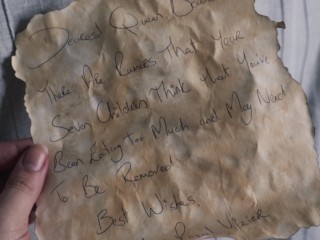 Dearest Queen
There Are Rumors That Your
Seven Children Think that You've
Been Eating too Much and May Need
To Be Removed
Best Wishes,
Royal Vizier